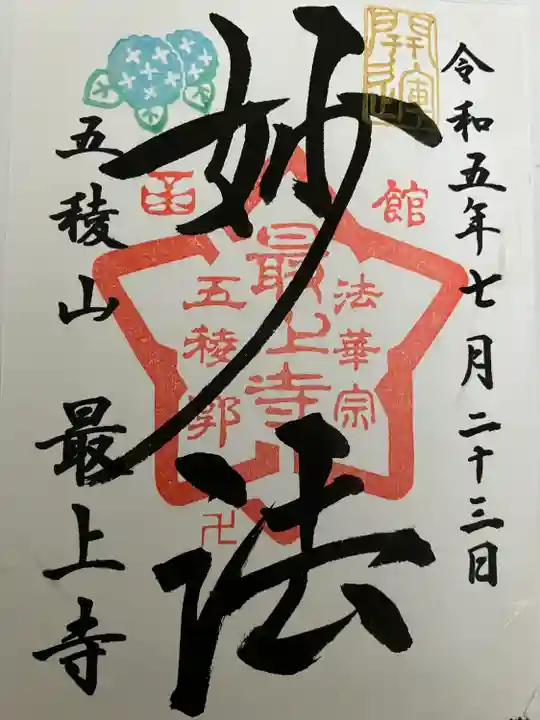 令和五年七月二十三日
開運
妙法
函館
法華宗
最上寺
五稜郭
卍
五稜山 最上寺